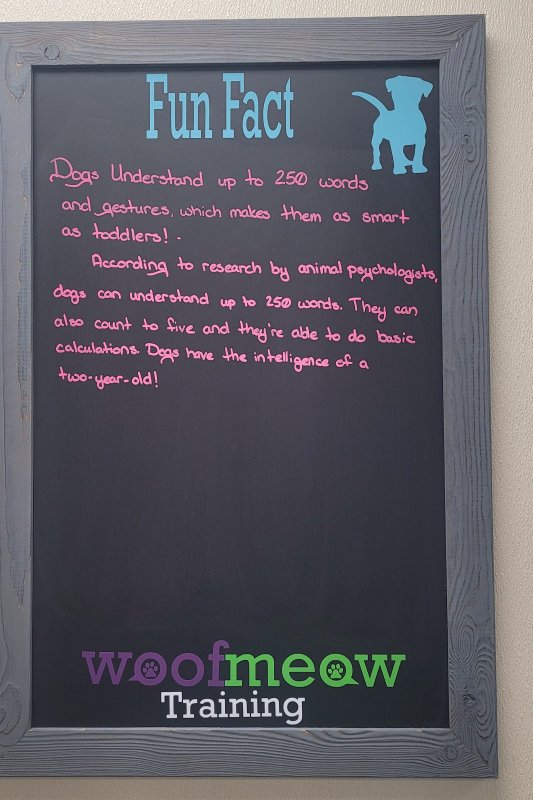 Fun Fact
Dogs Understand up to 250 words
and gestures, which makes them as smart
as toddlers! -
According to research by animal psychologists,
dogs can understand up to 250 words. They can
also count to five and they're able to do basic
calculations. Dogs have the intelligence of a
two-year-old!
woofmeow
Training